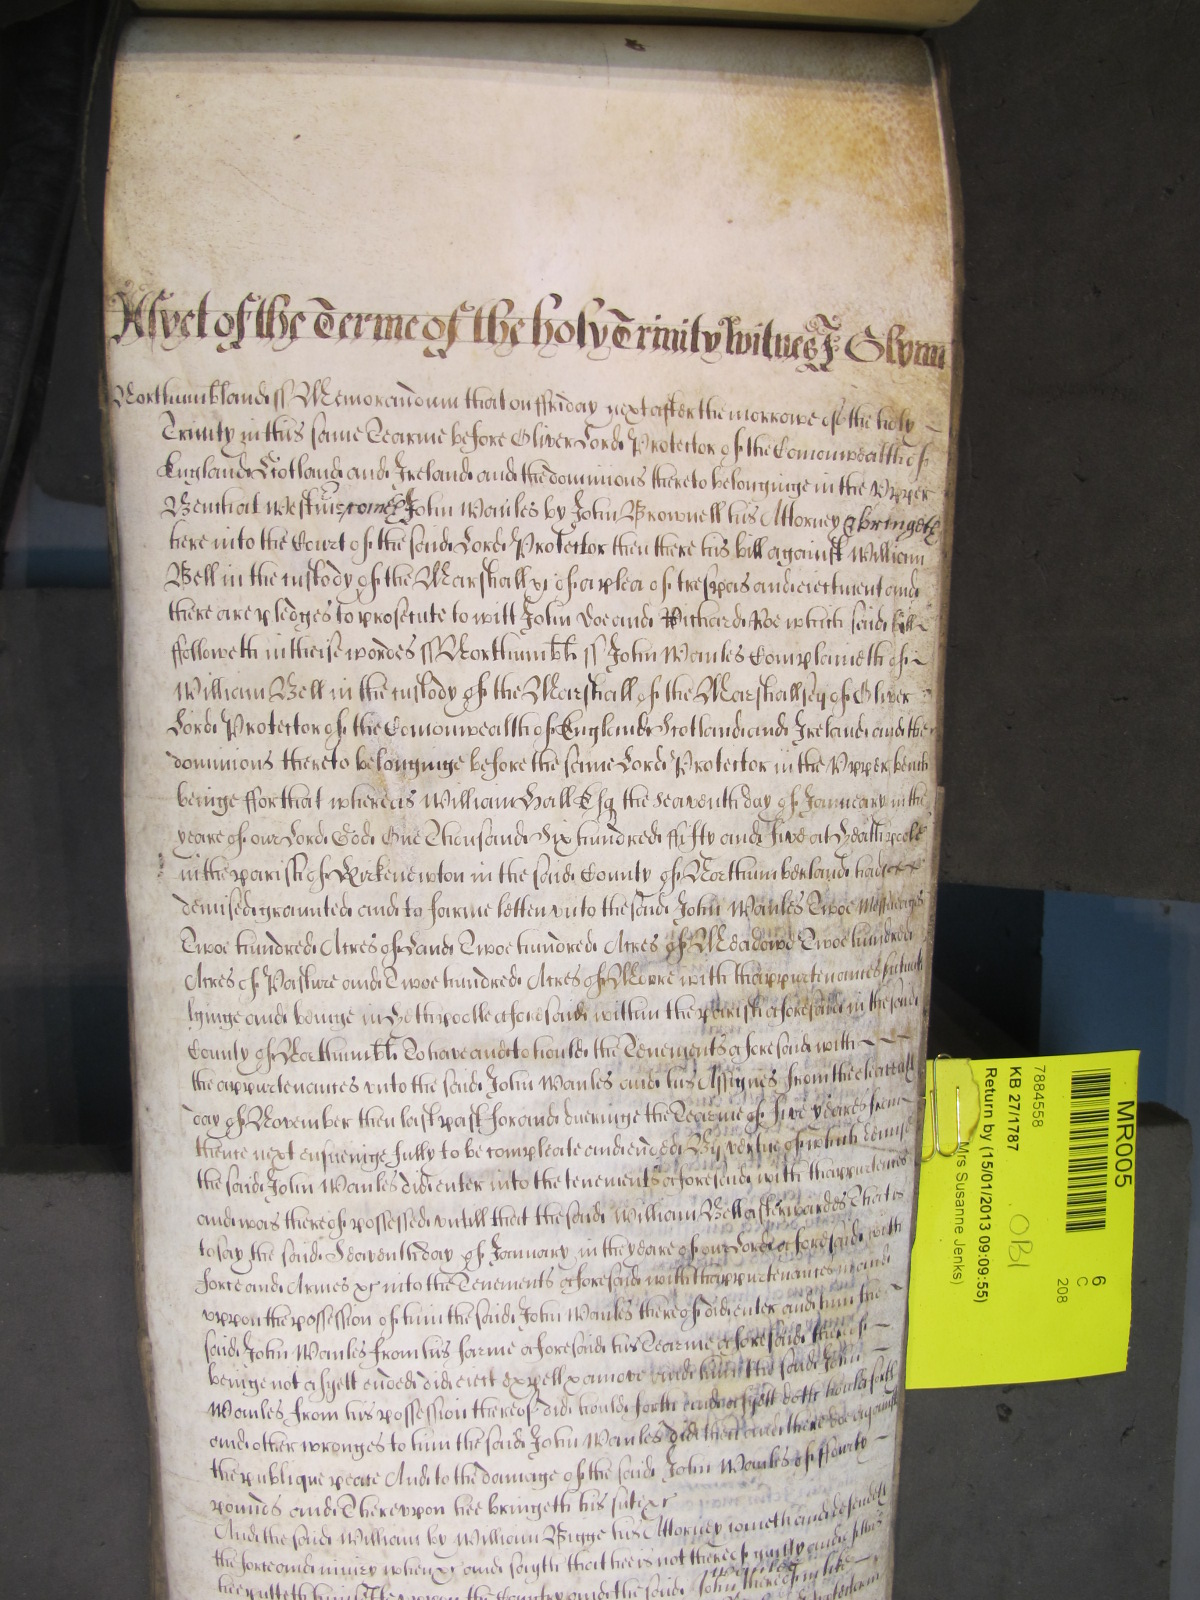 As yet of the Terme of the holy Trinity Witnes J: Glynn
Northumbland ss Memorandum that on ffriday next after the morrowe of the holy
Trinity in this same Tearme before Oliver Lord Protector of the Comonwealth of
England Scotland and Ireland and the dominions thereto belonginge in the Vpper
Bench at Westmr comes John Wanles by John Brownell his Attorney & bringeth
here into the Court of the said Lord Protector then there his bill against William
Bell in the custody of the Marshall xc of a plea of trespas and eiectment and
there are pledges to prosecute to witt John Doe and Richard Roe which said bill
followeth in theise wordes ss Northumbl ss John Wanles Complaineth of
William Bell in the custody of the Marshall of the Marshallsey of Oliver
Lord Protector of the Comonwealth of England Scotland and Ireland and the
dominions thereto belonginge before the same Lord Protector in the Vpper bench
beinge ffor that whereas William Hall Esq the seaventh day of Janueary in the
yeare of our Lord God One Thousand Six hundred ffifty and five at Heathpoole
in the parish of Kirkenewton in the said County of Northumberland had
demised graunted and to farme letten vnto the said John Wanles Twoe Messuages
Twoe hundred Acres of Land Twoe hundred Acres of Meadowe Twoe hundred
Acres of Pasture and Twoe hundred Acres of Moore with thappurtenances scituate
lyinge and beinge in Hethpoolle aforesaid within the parish aforesaid in the said
County of Northumbl To have and to hould the Tenements aforesaid with
the appurtenances vnto the said John Wanles and his Assignes from the eleaventh
day of November then last past for and dueringe the Tearme of five yeares from
thence next ensueinge fully to be compleate and ended By vertue of which demise
the said John Wanles did enter into the tenements aforesaid with thappurtences
and was thereof possessed vntill that the said William Bell afterwardes That is
to say the said Seaventh day of January in the yeare of our Lord aforesaid with
force and Armes xc into the Tenements aforesaid with thappurtenances in and
vppon the possession of him the said John Wanles thereof did enter and him the
said John Wanles from his farme aforesaid his Tearme aforesaid thereof
beinge not as yett ended did eiect expell x amove and him the said John
Wanles from his possession thereof did hould forth and as yett doth hould forth
and other wronges to him the said John Wanles did then and there doe against
the publique peace And to the damage of the said John Wanles of ffourty
pounds and Therevpon hee bringeth his sute xc
And the said William by William Bigge his Attorney cometh and defendeth
the force and iniury when xc and saigth that hee is not thereof guilty and of this
hee putteth himselfe vppon the Country and the said John Wanles thereof in like
MR005
6
C
208
7884558
KB 27/1787
OBI
Return by (15/01/2013 09:09:55)
Mrs Susanne Jenks)